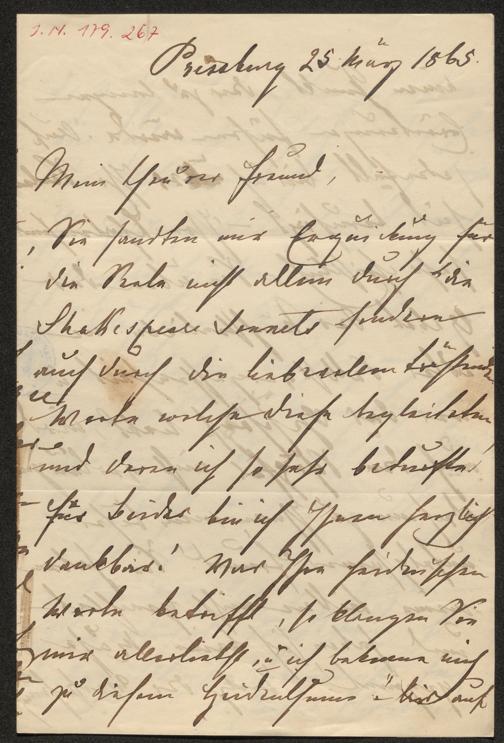 I. N. 179. 267
Pressburg 25 März 1865.
Mein theurer Freund,
Sie sandten mir Erquickung für
die Seele nicht allein durch die
Shakespeare Sonnets sondern
auch durch die liebevollen tröstenden
Worte welche diese begleiteten
und deren ich so sehr bedurfte.
für Beides bin ich Ihnen herzlich
dankbar! Was Ihre heidnischen
Worte betrifft, so klangen Sie
mir allerliebst, u ich bekenne mich
zu diesem Heidenthume auf